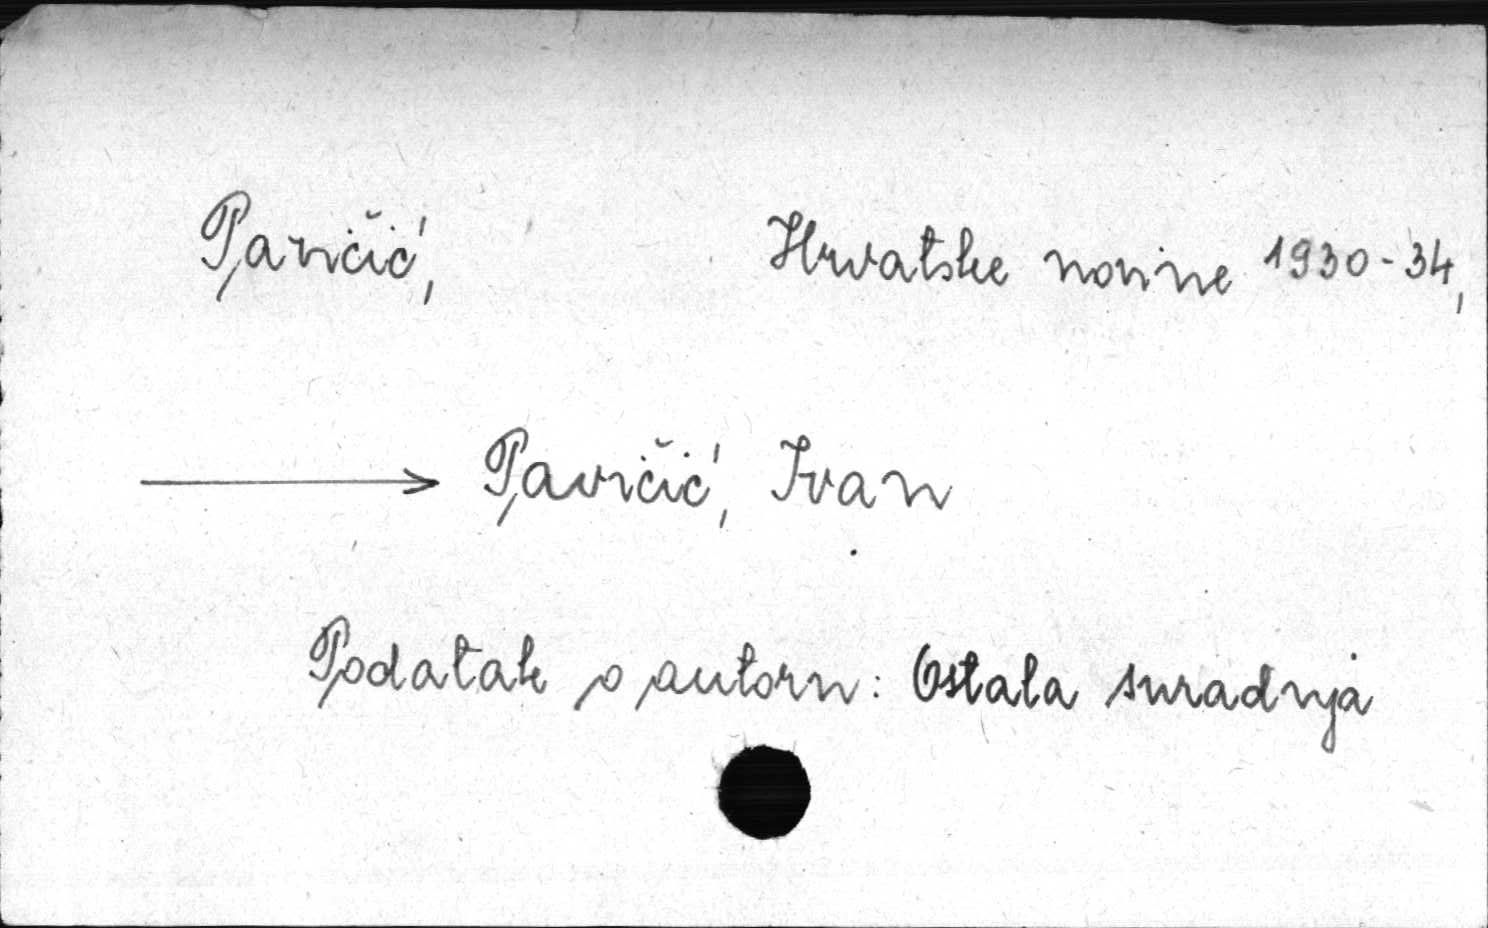 Pavičić, Hrvatske novine 1930-34,
→ Pavičić, Ivan
Podatak o autoru: Ostala suradnja